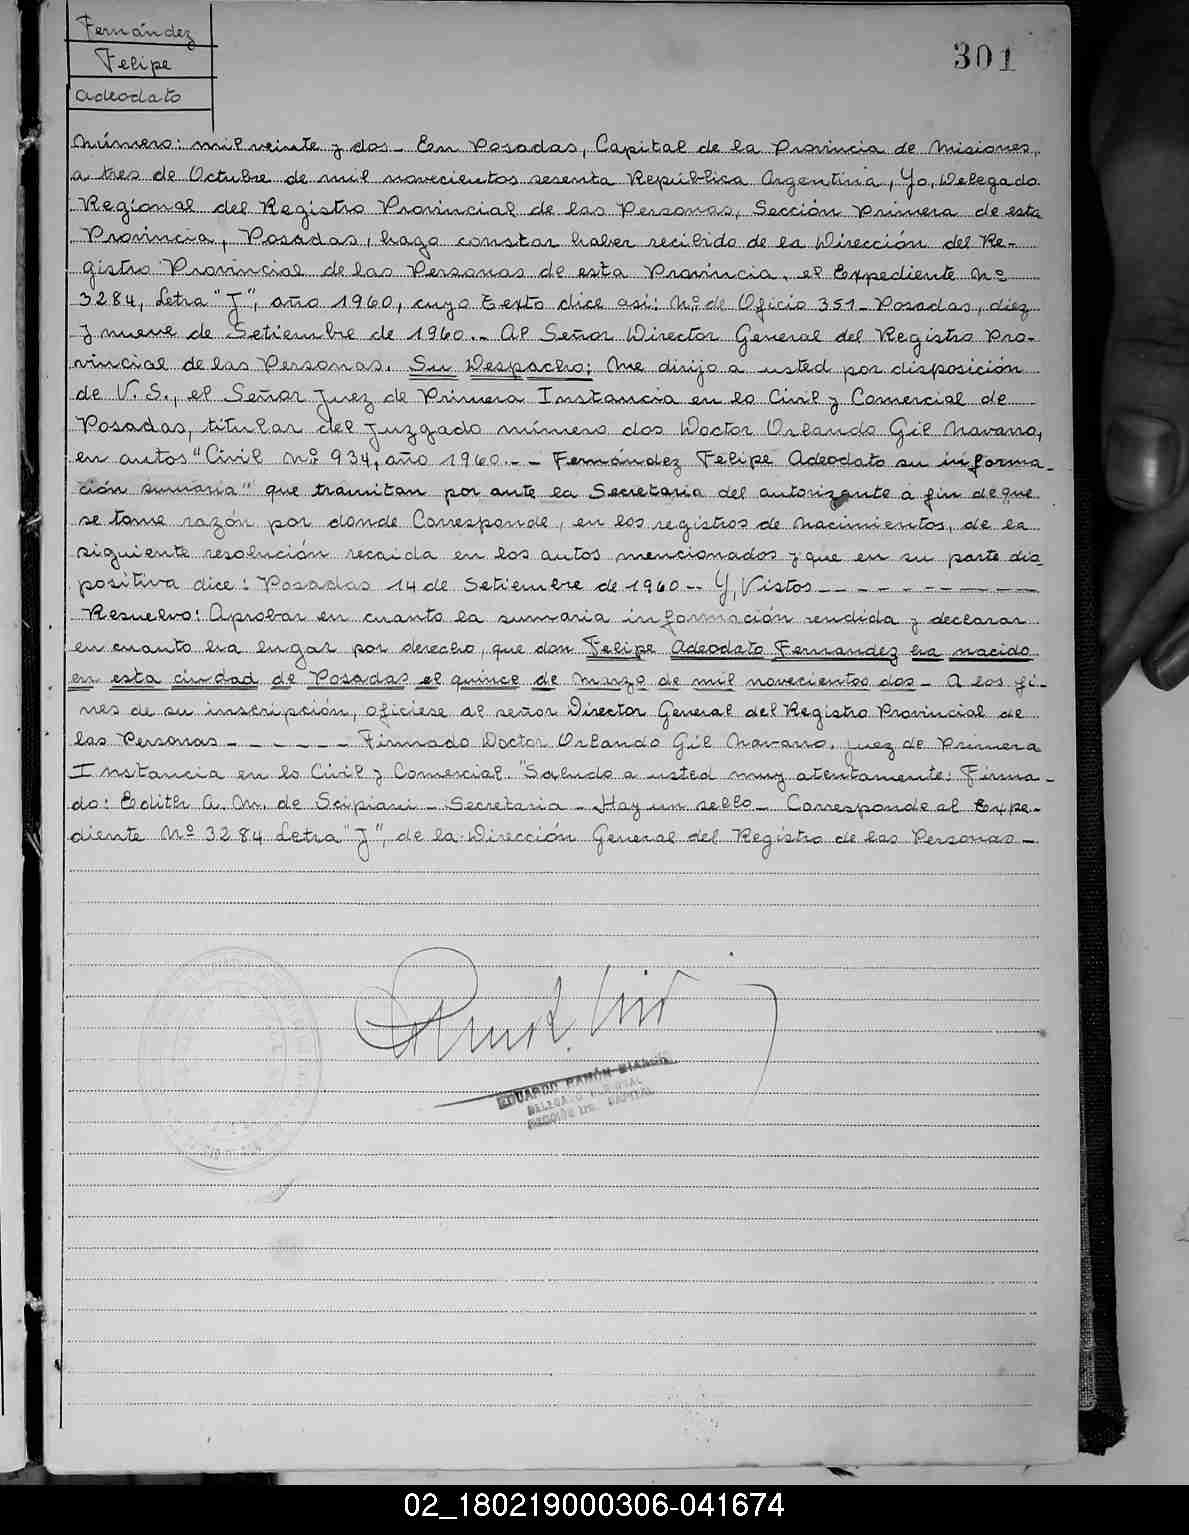 Fernández
Felipe
Adeodato
301
Número: mil veinte y dos - En Posadas, Capital de la Provincia de Misiones,
a tres de Octubre de mil novecientos sesenta República Argentina, Yo, Delegado
Regional del Registro Provincial de las Personas, Sección Primera de esta
Provincia, Posadas, hago constar haber recibido de la Dirección del Re-
gistro Provincial de las Personas de esta Provincia, el Expediente Nº
3284, Letra "J", año 1960, cuyo texto dice así: Nº de Oficio 351 - Posadas, diez
y nueve de Setiembre de 1960.- Al Señor Director General del Registro Pro-
vincial de las Personas. Su Despacho: Me dirijo a usted por disposición
de V. S., el Señor Juez de Primera Instancia en lo Civil y Comercial de
Posadas, titular del Juzgado número dos Doctor Orlando Gil Navarro,
en autos "Civil Nº 934, año 1960.-- Fernández Felipe Adeodato su informa-
ción sumaria" que tramitan por ante la Secretaria del autorizante a fin de que
se tome razón por donde Corresponde, en los registros de nacimientos, de la
siguiente resolución recaida en los autos mencionados y que en su parte dis-
positiva dice: Posadas 14 de Setiembre de 1960 -- Y, Vistos - - - - - - - - - -
Resuelvo: Aprobar en cuanto la sumaria información rendida y declarar
en cuanto ha lugar por derecho, que don Felipe Adeodato Fernandez ha nacido
en esta ciudad de Posadas el quince de marzo de mil novecientos dos - A los fi-
nes de su inscripción, oficiese al señor Director General del Registro Provincial de
las Personas - - - - - - Firmado Doctor Orlando Gil Navarro. Juez de Primera
Instancia en lo Civil y Comercial. "Saludo a usted muy atentamente: Firma-
do: Edith A. M. de Scipiani - Secretaria - Hay un sello - Corresponde al Expe-
diente Nº 3284 Letra "J", de la Dirección General del Registro de las Personas -
EDUARDO RAMÓN
02_180219000306-041674